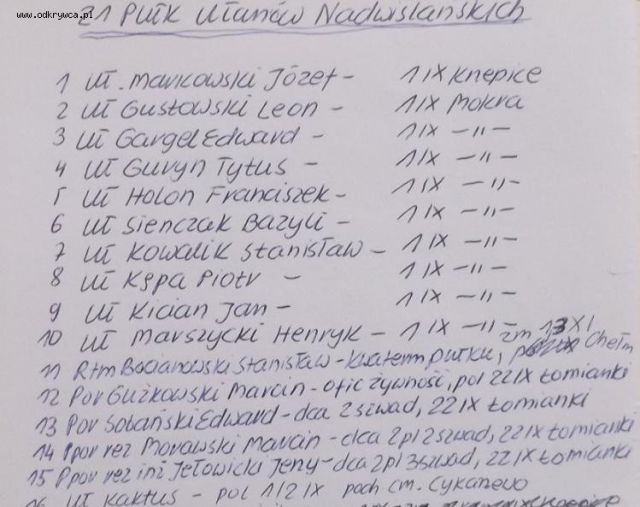 www.odkrywca.pl
21 Pułk Ułanów Nadwiślańskich
1 uł. Markowski Józef - 1 IX Knepice
2 uł Gustowski Leon - 1 IX Mokra
3 uł Gargel Edward - 1 IX -"-
4 uł Guryn Tytus - 1 IX -"-
5 uł Holon Franciszek - 1 IX -"-
6 uł Sienczak Bazyli - 1 IX -"-
7 uł Kowalik Stanisław - 1 IX -"-
8 uł Kępa Piotr - 1 IX -"-
9 uł Kician Jan - 1 IX -"-
10 uł Marszycki Henryk - 1 IX -"-
zm 13 XI
11 Rtm Bocianowski Stanisław - kwaterm pułku, Chełm
12 Por Guzkowski Marcin - ofic żywność, pol 22 IX Łomianki
13 Por Sobański Edward - dca 2 szwad, 22 IX Łomianki
14 ppor rez Morawski Marcin - dca 2 pl 2 szwad, 22 IX Łomianki
15 Ppor rez inż Jełowicki Jeny - dca 2 pl 3 szwad, 22 IX Łomianki
16 uł Kaktus - pol 1/2 IX poch cm. Cykanewo